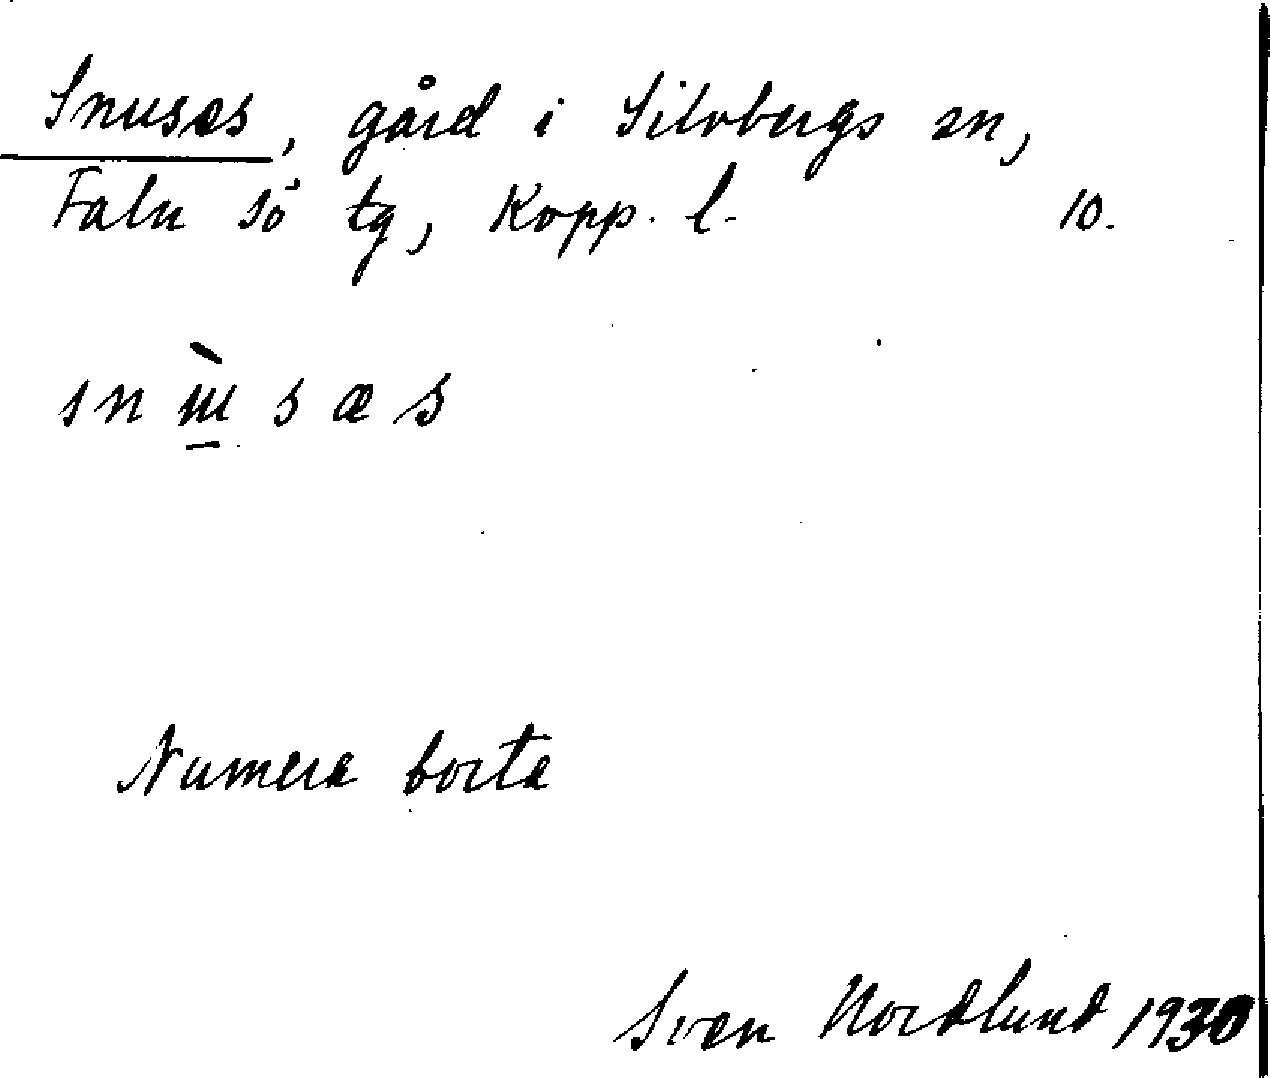 Snuses, gård i Silvbergs sn,
Falu sö tg, Kopp. l. 10.
Numera borta
Sven Nordlund 1930